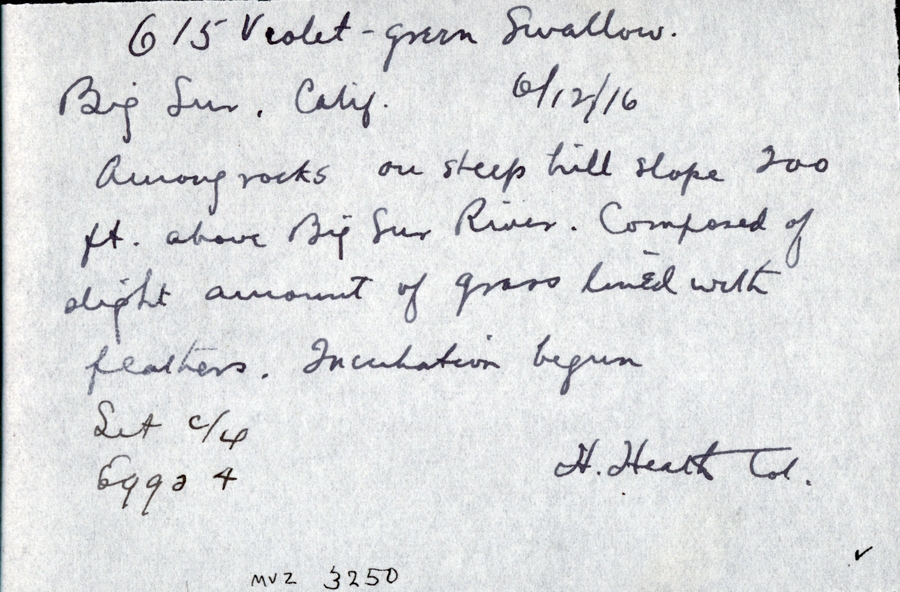 615 Violet-green Swallow.
Big Sur, Calif. 6/12/16
Among rocks on steep hill slope 200
ft. above Big Sur River. Composed of
slight amount of grass lined with
feathers. Incubation begun
Set c/4
Eggs 4
H. Heath Col.
MVZ 3250